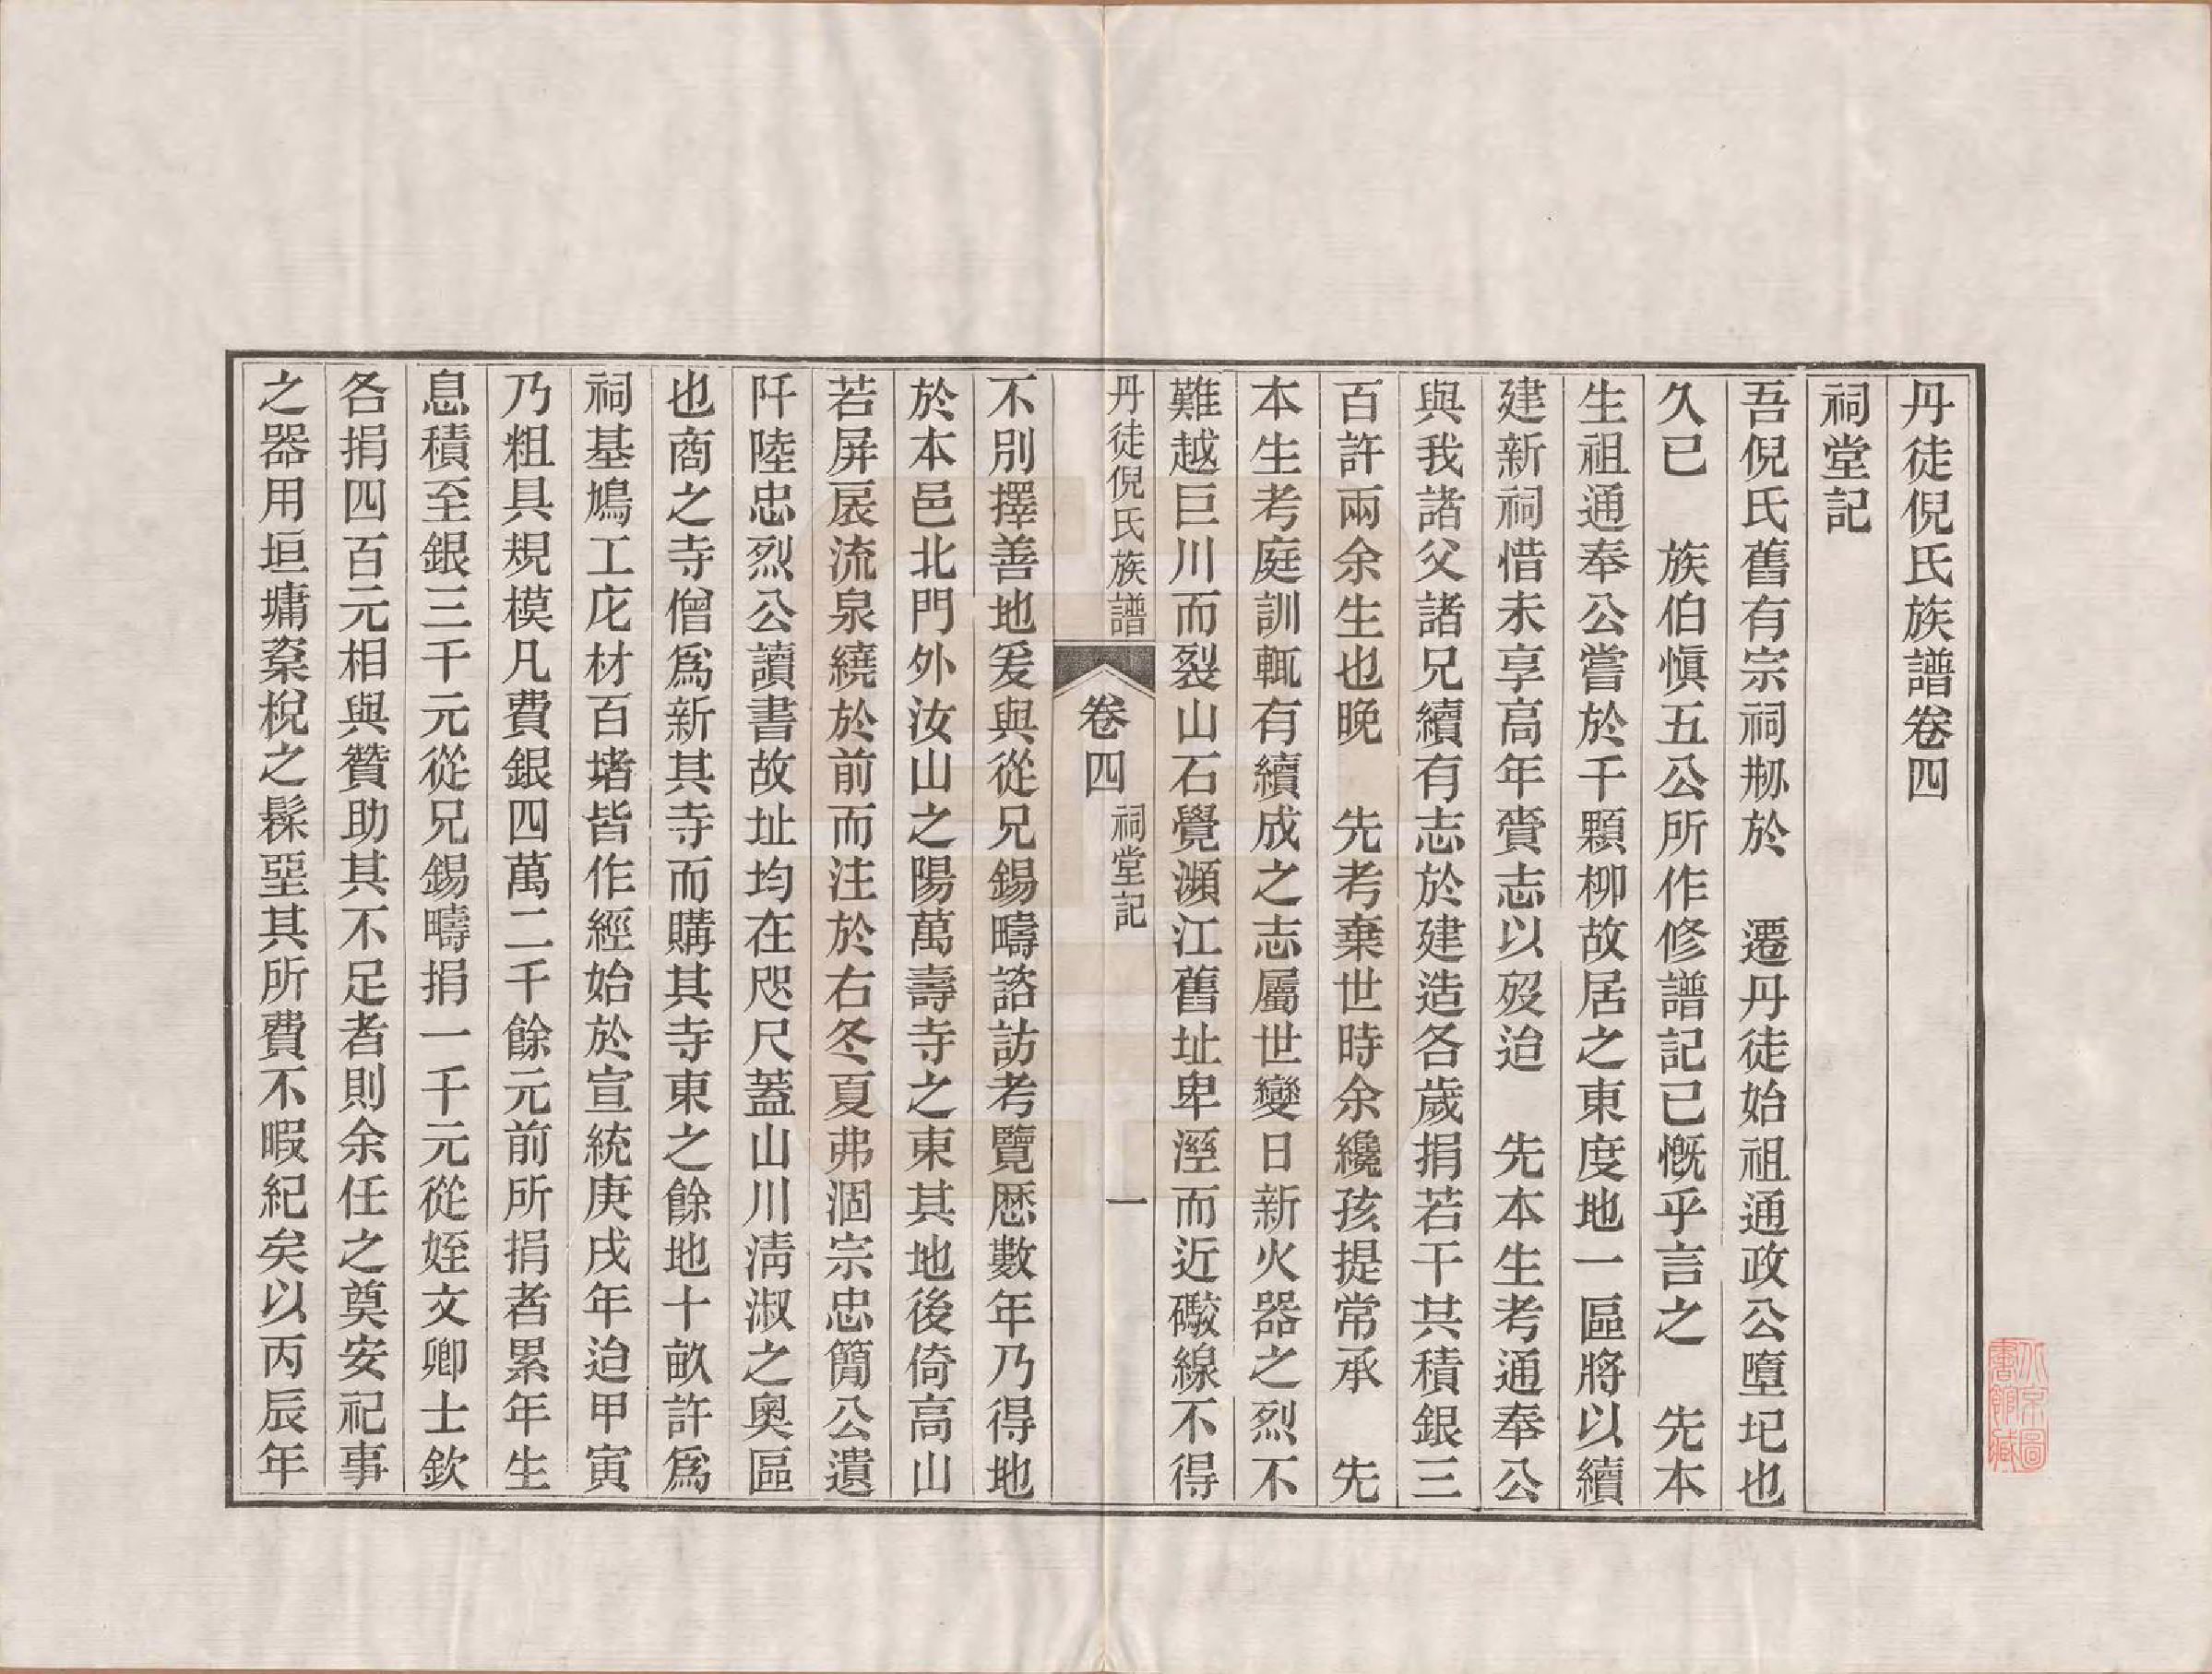 丹徒倪氏族譜卷四
祠堂記
吾倪氏舊有宗祠刱於　遷丹徒始祖通政公墮圮也
久已　族伯愼五公所作修譜記己慨乎言之　先本
生祖通奉公嘗於千顆柳故居之東度地一區將以續
建新祠惜未享高年賫志以歿迨　先本生考通奉公
與我諸父諸兄續有志於建造各歲捐若干其積銀三
百許兩余生也晚　先考棄世時余纔孩提常承　先
本生考庭訓輒有續成之志屬世變日新火器之烈不
難越巨川而裂山石覺瀕江舊址卑溼而近礮線不得
丹徒倪氏族譜　卷四　祠堂記　一
不別擇善地爰與從兄錫疇諮訪考覽歷數年乃得地
於本邑北門外汝山之陽萬壽寺之東其地後倚高山
若屏扆流泉繞於前而注於右冬夏弗涸宗忠簡公遺
阡陸忠烈公讀書故址均在咫尺蓋山川淸淑之奧區
也商之寺僧爲新其寺而購其寺東之餘地十畝許爲
祠基鳩工庀材百堵皆作經始於宣統庚戌年迨甲寅
乃粗具規模凡費銀四萬二千餘元前所捐者累年生
息積至銀三千元從兄錫疇捐一千元從姪文卿士欽
各捐四百元相與贊助其不足者則余任之奠安祀事
之器用垣墉楶梲之髹堊其所費不暇紀矣以丙辰年